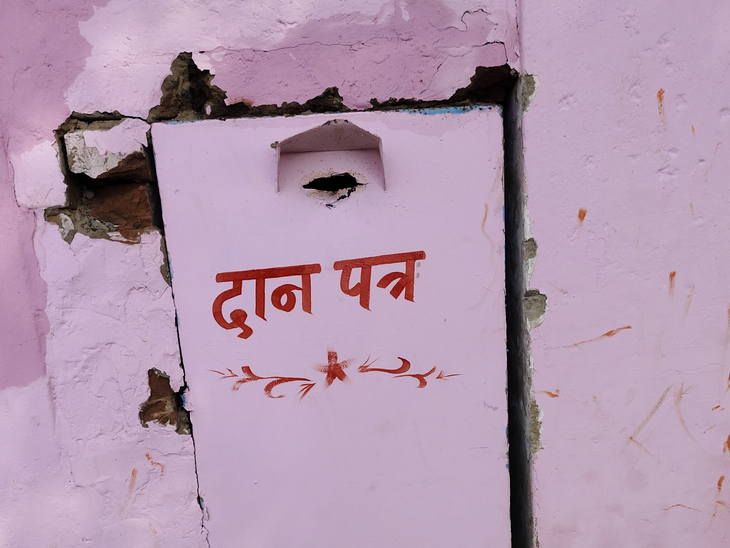 दान पत्र